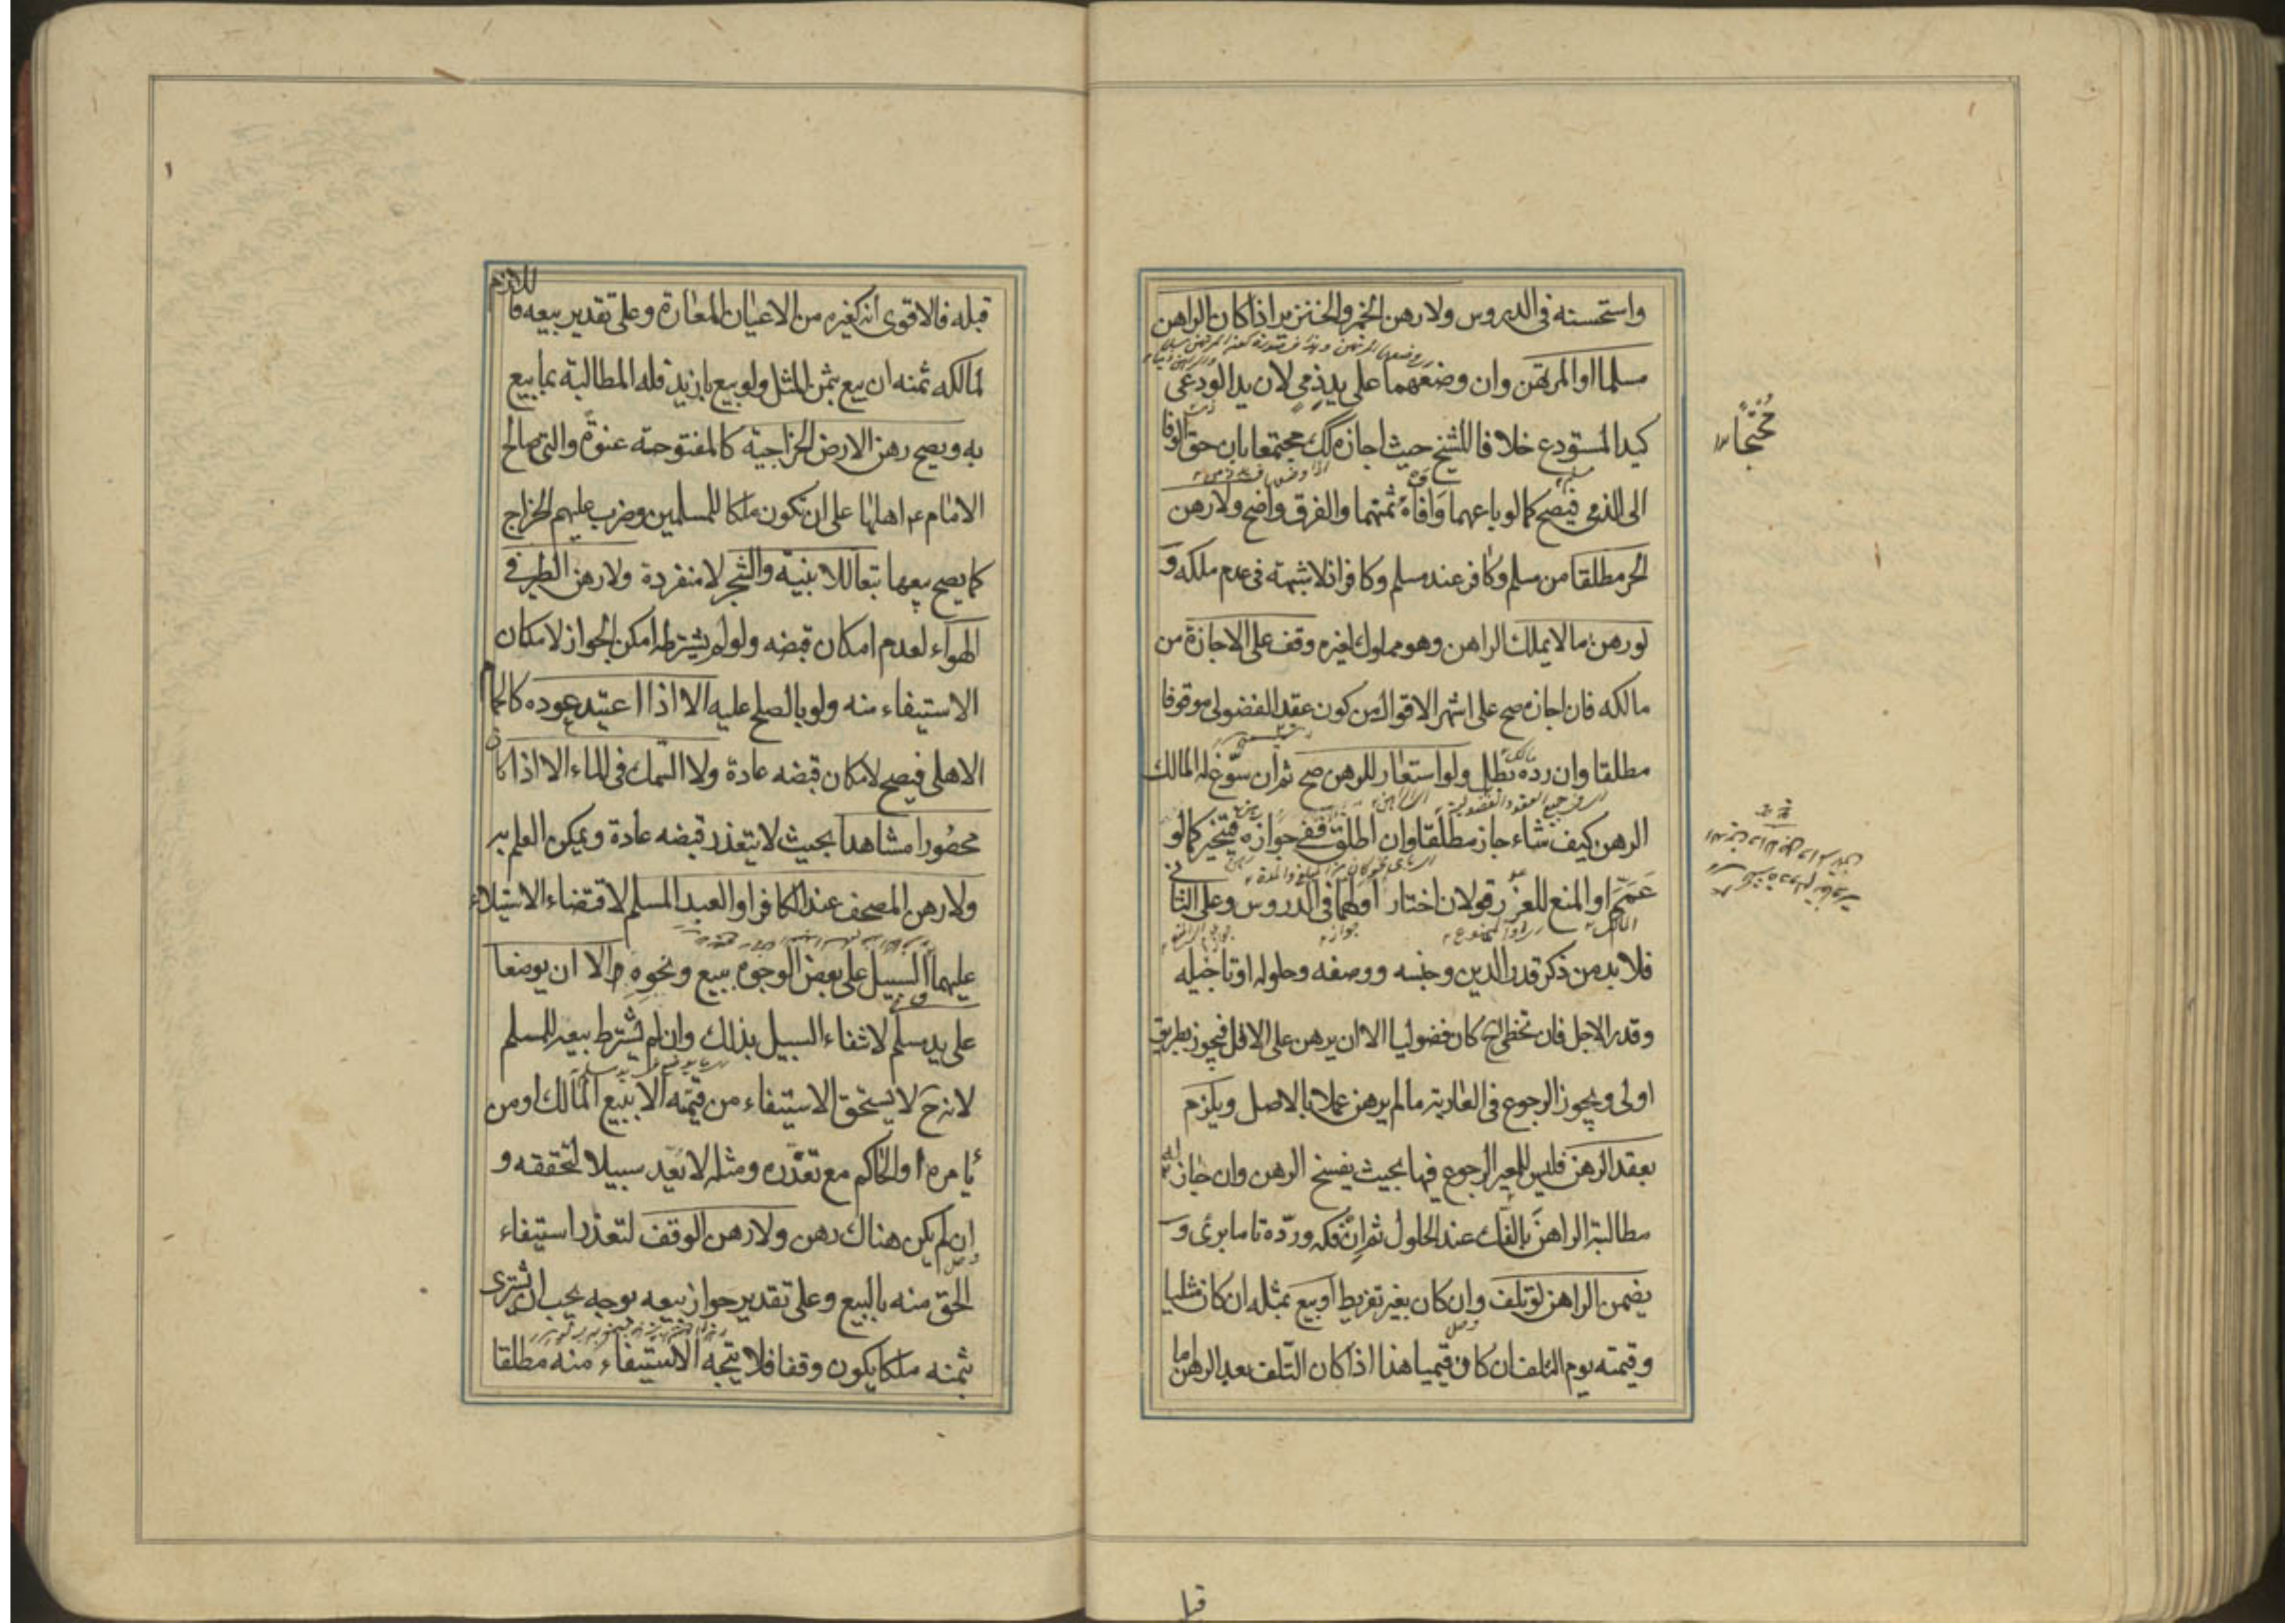 واستحسنه في الدروس ولا رهن الخمر والخنزير اذا كان الراهن
مسلما او المرتهن وان وضعهما على يد ذمي لان يد الودعي
كيد المستودع خلافا للشيخ حيث اجازه كك محتجا بان حق الوفا
الى الذمي فيصح كما لو باعهما وافاه ثمنهما والفرق واضح ولا رهن
الحر مطلقا من مسلم وكافر عند مسلم وكافر اذ لا شبهة في عدم ملكه و
لو رهن ما لا يملك الراهن وهو مملوك لغيره وقف على الاجازة من
مالكه فان اجازه صح على اشهر الاقوال من كون عقد الفضولي موقوفا
مطلقا وان رده بطل ولو استعار للرهن صح ثم ان سوغ له المالك
الرهن كيف شاء جاز مطلقا وان اطلق ففي جوازه فيتخير كما لو
عمم او المنع للغرر قولان اختار اولهما في الدروس وعلى الثاني
فلا بد من ذكر قدر الدين وجنسه ووصفه وحلوله او تاجيله
وقدر الاجل فان تخطى ح كان فضوليا الا ان يرهن على الاقل فيجوز بطريق
اولى ويجوز الرجوع في العارية ما لم يرهن عملا بالاصل ويلزم
بعقد الرهن فليس للمعير الرجوع فيها بحيث يفسخ الرهن وان جاز له
مطالبة الراهن بالفك عند الحلول ثم ان فكه ورده تاما برئ و
يضمن الراهن لو تلف وان كان بغير تفريط او بيع بمثله ان كان مثليا
وقيمته يوم التلف ان كان قيميا هذا اذا كان التلف بعد الرهن اما
محتجا
قبل
قبله فالاقوى انه كغيره من الاعيان المعارة وعلى تقدير بيعه فاللازم
لمالكه ثمنه ان بيع بثمن المثل ولو بيع بازيد فله المطالبة بما بيع
به ويصح رهن الارض الخراجية كالمفتوحة عنوة والتي صالح
الامام ع اهلها على ان تكون ملكا للمسلمين وضرب عليهم الخراج
كما يصح بيعها تبعا للابنية والشجر لا منفردة ولا رهن الطير في
الهواء لعدم امكان قبضه ولو لم يشترطه امكن الجواز لامكان
الاستيفاء منه ولو بالصلح عليه الا اذا اعتيد عوده كالحمام
الاهلي فيصح لامكان قبضه عادة ولا السمك في الماء الا اذا كان
محصورا مشاهدا بحيث لا يتعذر قبضه عادة ويمكن العلم به
ولا رهن المصحف عند الكافر او العبد المسلم لاقتضاء الاستيلاء
عليهما السبيل على بعض الوجوه ببيع ونحوه الا ان يوضعا
على يد مسلم لانتفاء السبيل بذلك وان لم يشترط بيعه للمسلم
لانه ح لا يستحق الاستيفاء من قيمته الا ببيع المالك او من
يامره او الحاكم مع تعذره ومثله لا يعد سبيلا لتحققه و
ان لم يكن هناك رهن ولا رهن الوقف لتعذر استيفاء
الحق منه بالبيع وعلى تقدير جواز بيعه بوجه يجب ان يشترى
بثمنه ملكا يكون وقفا فلا يتجه الاستيفاء منه مطلقا